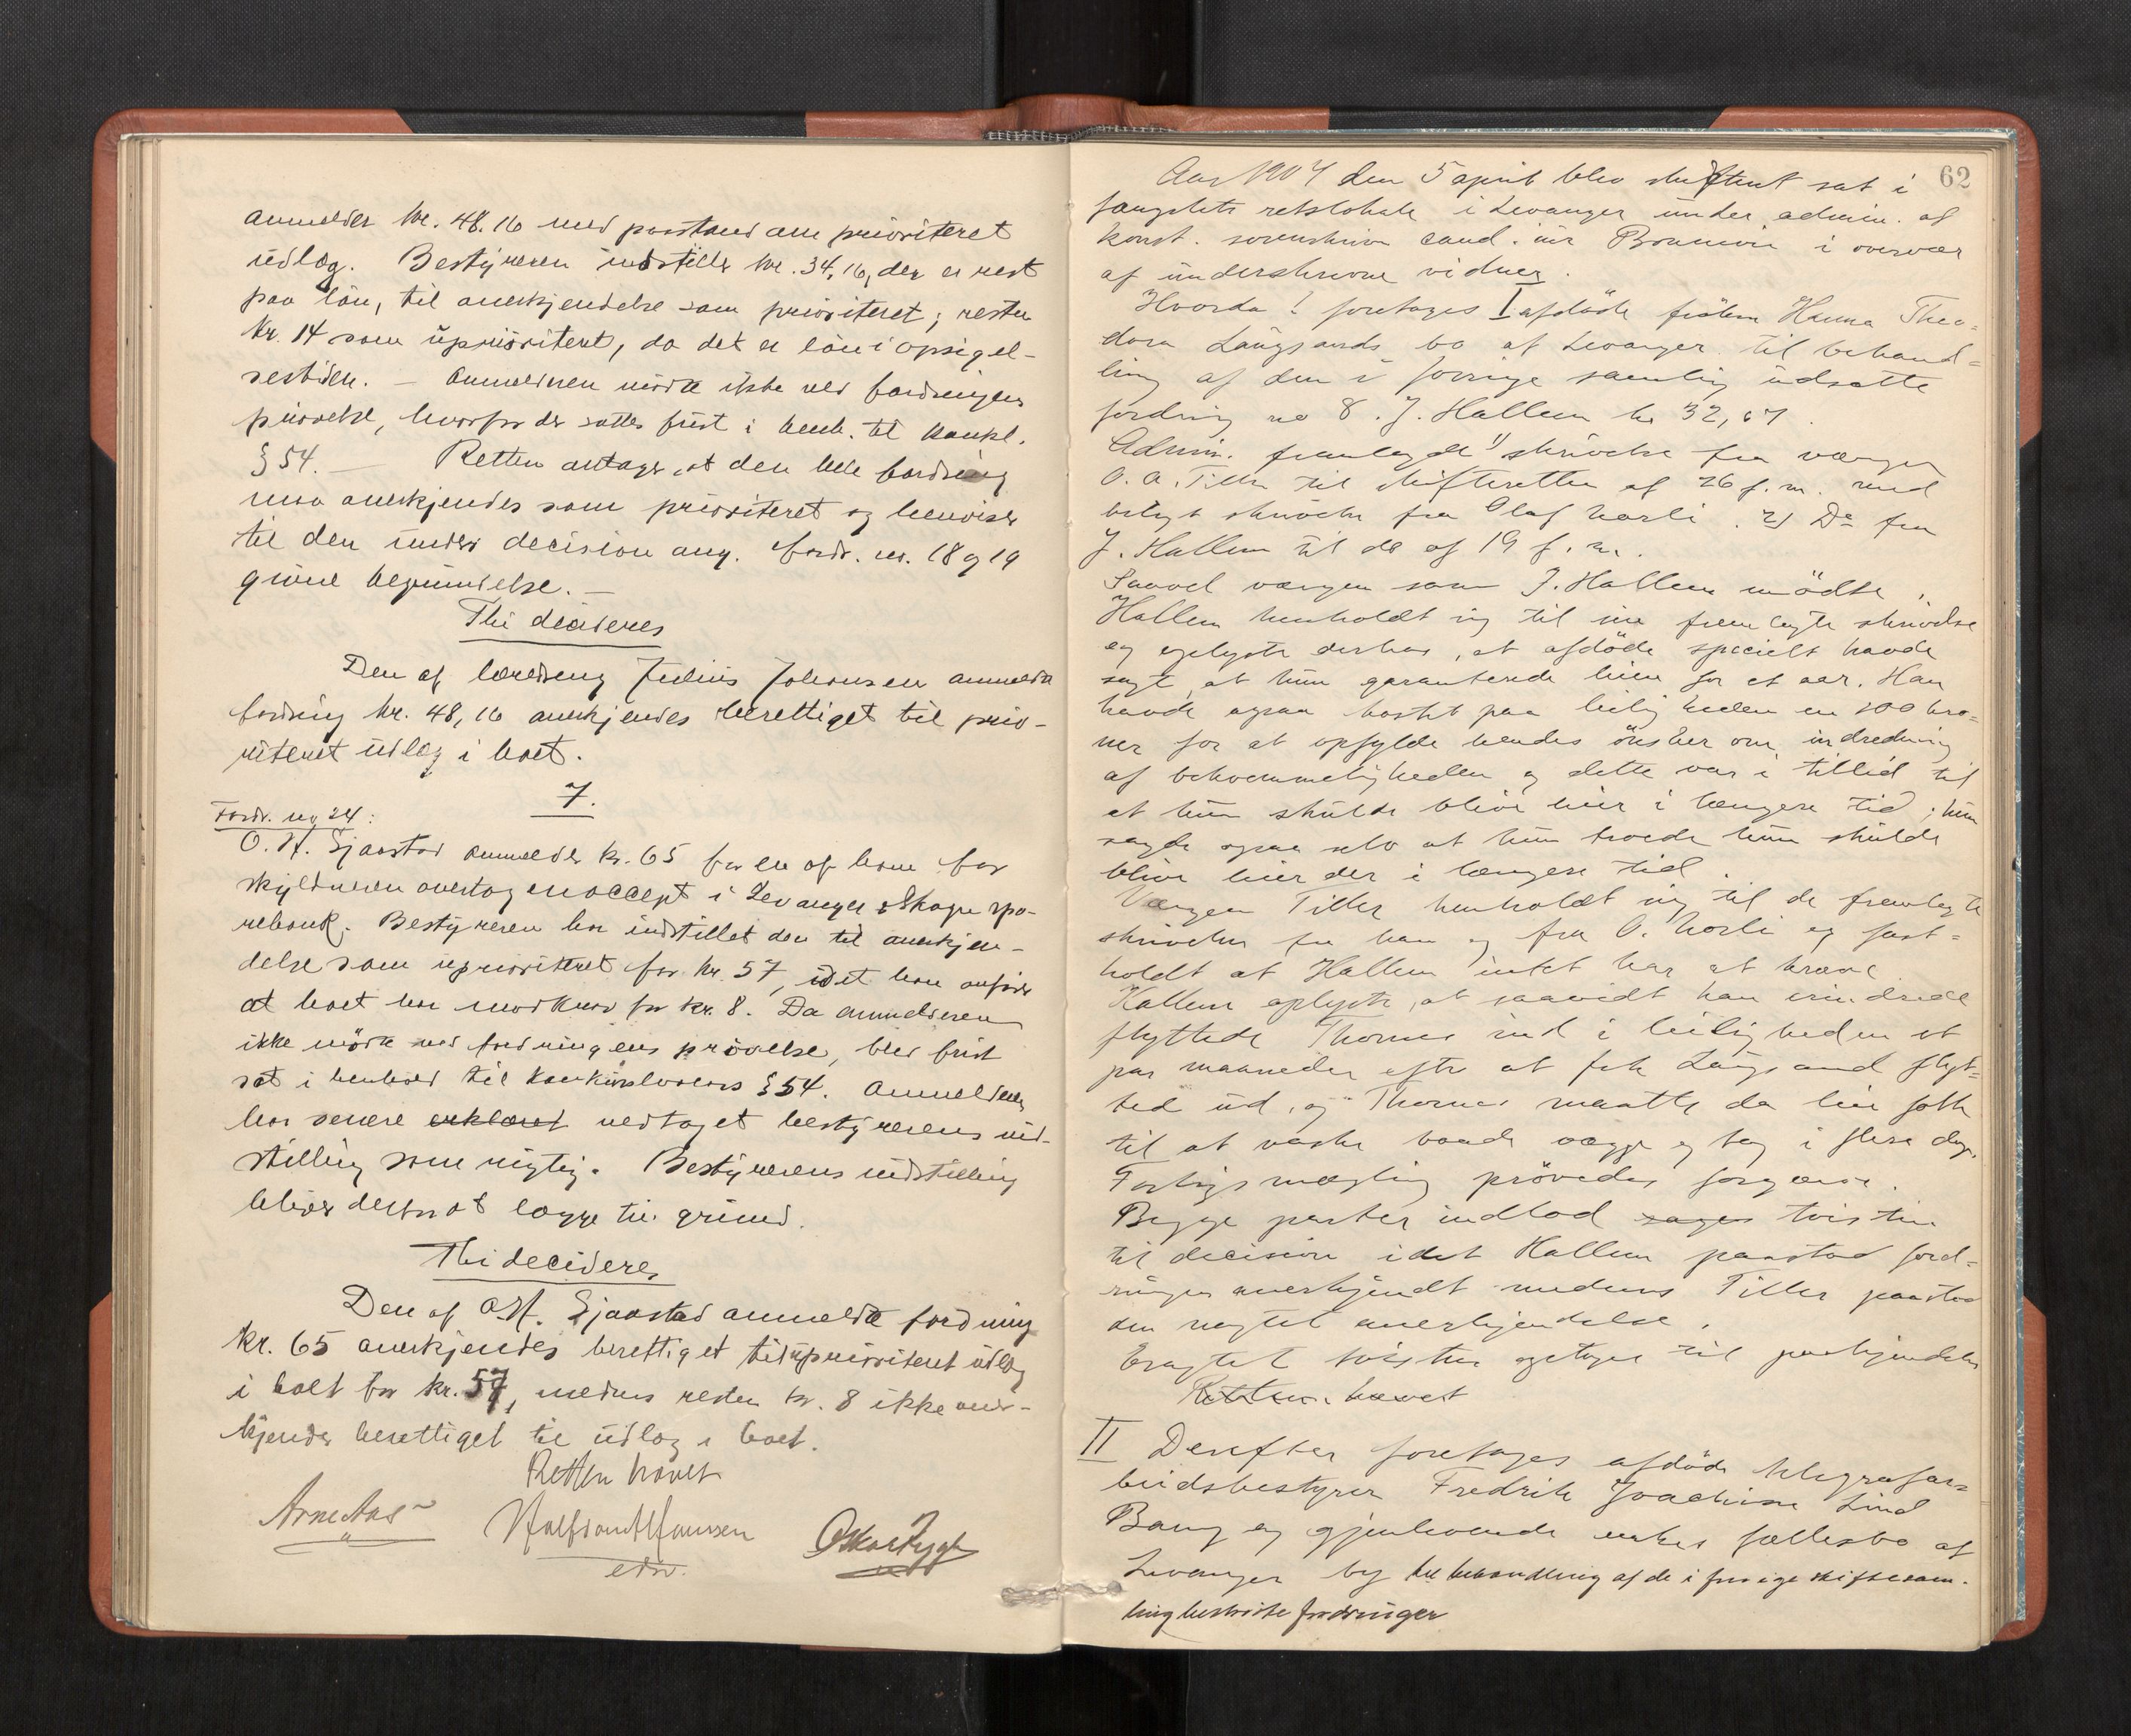 anmelder kr. 48.16 med paastand om prioriteret
udlæg. Bestyreren indstiller kr. 34,16, der er rest
paa løn, til anerkjendelse som prioriteret; resten
kr. 14 som uprioriteret, da det er løn i opsigel-
sestiden. — Anmelderen mødte ikke ved fordringens
prøvelse, hvorfor der sattes frist i henh. til konkl.
§ 54. — Retten antager, at den hele fordring
maa anerkjendes som prioriteret og henviser
til den under decision ang. fordr. no. 18 og 19
givne begrundelse. —
Thi decideres
Den af Julius Johansen anmeldte
fordring kr. 48,16 anerkjendes berettiget til prio-
riteret udlæg i boet.
7.
Fordr. no 24:
O. H. Sjaastad anmelder kr. 65 for en af ham for
skyldneren overtagen accept i Levanger & Skogn spa-
rebank. Bestyreren har indstillet den til anerkjen-
delse som uprioriteret for kr. 57, idet han anfører
at boet har modkrav for kr. 8. Da anmelderen
ikke mødte ved fordringens prøvelse, blev frist
sat i henhold til konkurslovens § 54. Anmelderen
har senere erklæret vedtaget bestyrerens ind-
stilling som rigtig. Bestyrerens indstilling
bliver derfor at lægge til grund.
Thi decideres
Den af O. H. Sjaastad anmeldte fordring
kr. 65 anerkjendes berettiget til uprioriteret udlæg
i boet for kr. 57, medens resten kr. 8 ikke aner-
kjendes berettiget til udlæg i boet.
Retten hævet
Arne Aas
edsv.
62
Aar 1904 den 5 april blev skifteret sat i
fængslets retslokale i Levanger under admin. af
konst. sorenskriver cand. jur i overvær
af underskrevne vidner.
Hvorda! foretages I afdøde frøken Hanna Theo-
dora Langsands bo af Levanger til behand-
ling af den i forrige samling udsatte
fordring no 8. J. Hallem kr 32,67.
Admin. fremlagde 1) skrivelse fra værgen
O. A. Tiller til skifteretten af 26 f. m. med
bilagt skrivelse fra Olaf Norli. 2) Do fra
J. Hallem til do af 19 f. m.
Saavel værgen som J. Hallem mødte.
Hallem henholdt sig til sin fremlagte skrivelse
og oplyste derhos, at afdøde specielt havde
sagt, at hun garanterede leien for et aar. Han
havde ogsaa kostet paa leiligheden en 100 kro-
ner for at opfylde hendes ønsker om indredning
af bekvemmeligheden og dette var i tillid til
at hun skulde blive leier i længere tid; hun
sagde ogsaa selv at hun troede hun skulde
blive leier der i længere tid.
Værgen Tiller henholdt sig til de fremlagte
skrivelser fra ham og fra O. Norli og fast-
holdt at Hallem intet har at kræve.
Hallem oplyste, at saavidt han erindrede
flyttede Thornes ind i leiligheden et
par maaneder efter at frk Langsand flyt-
ted ud, og Thornes maatte da leie folk
til at vaske baade vægge og tag i flere dage.
Forligsmægling prøvedes forgjæves.
Begge parter indlod sagen tvisten
til decision idet Hallem paastod ford-
ringen anerkjendt medens Tiller paastod
den nægtet anerkjendelse.
Eragtet tvisten optages til paakjendelse
Retten hævet
II Derefter foretages afdøde telegrafar-
beidsbestyrer Fredrik Joachim Lind
Bang og gjenlevende enkes fællesbo af
Levanger by til behandling af de i forrige skiftesam-
ling bestridte fordringer